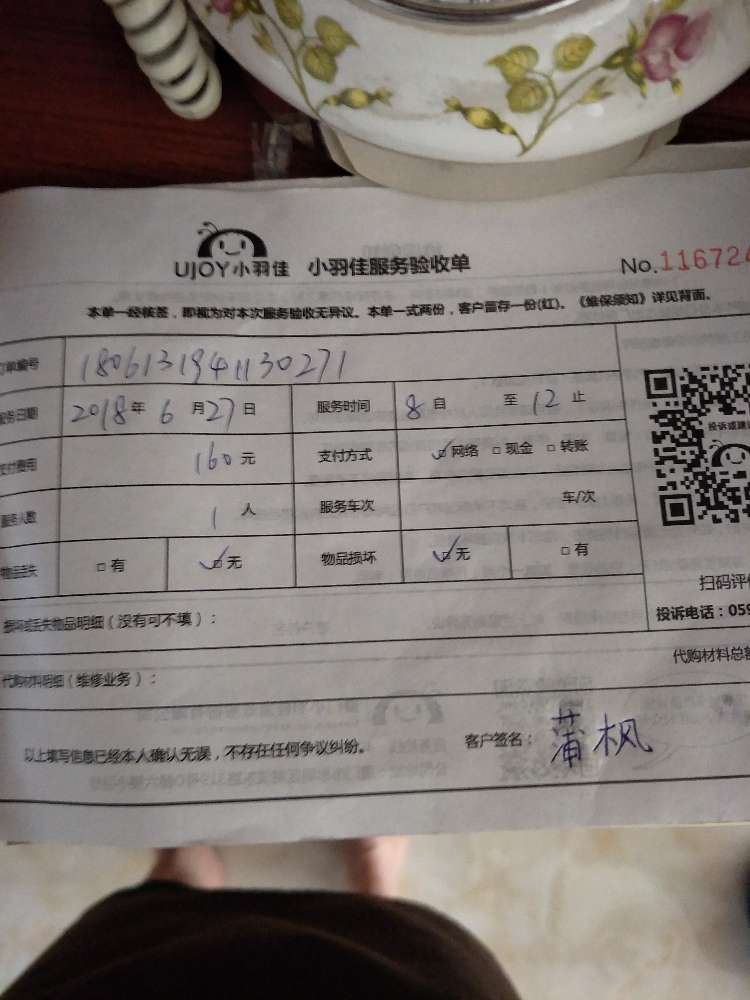 UJOY小羽佳 小羽佳服务验收单 No.116724
本单一经核签，即视为对本次服务验收无异议。本单一式两份，客户留存一份(红)。《维保须知》详见背面。
订单编号 1806131941130271
服务日期 2018年6月27日 服务时间 8自 至12止
支付费用 160元 支付方式 ☑网络 □现金 □转账
服务人数 1人 服务车次 车/次
投诉或建议
物品丢失 □有 ☑无 物品损坏 ☑无 □有
扫码评价
损坏或丢失物品明细（没有可不填）： 投诉电话：059
代购材料明细（维修业务）： 代购材料总额
以上填写信息已经本人确认无误，不存在任何争议纠纷。 客户签名：蒲枫